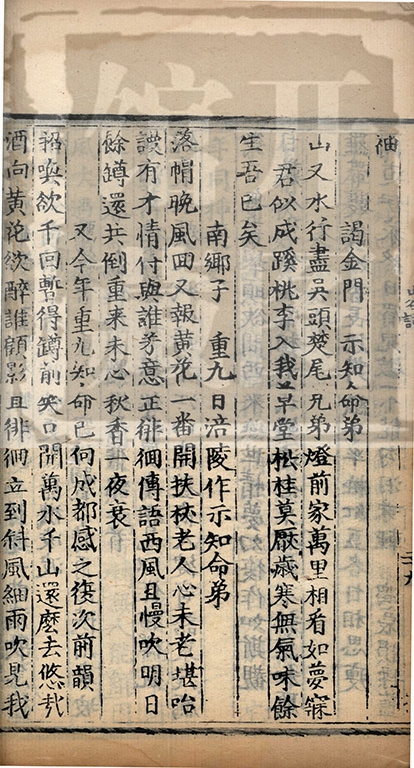 袖
謁金門　示知命弟
山又水行盡吳頭楚尾兄弟燈前家萬里相看如夢寐
君似成蹊桃李入我草堂松桂莫厭歲寒無氣味餘
生吾已矣
南鄉子　重九日涪陵作示知命弟
落帽晚風回又報黃花一番開扶杖老人心未老堪咍
謾有才情付與誰　芳意正徘徊傳語西風且慢吹明日
餘罇還共倒重來未必秋香一夜衰
又今年重九知命已向成都感之復次前韻
招喚欲千回暫得罇前笑口開萬水千山還麽去悠哉
酒向黃花欲醉誰　顧影且徘徊立到斜風細雨吹見我